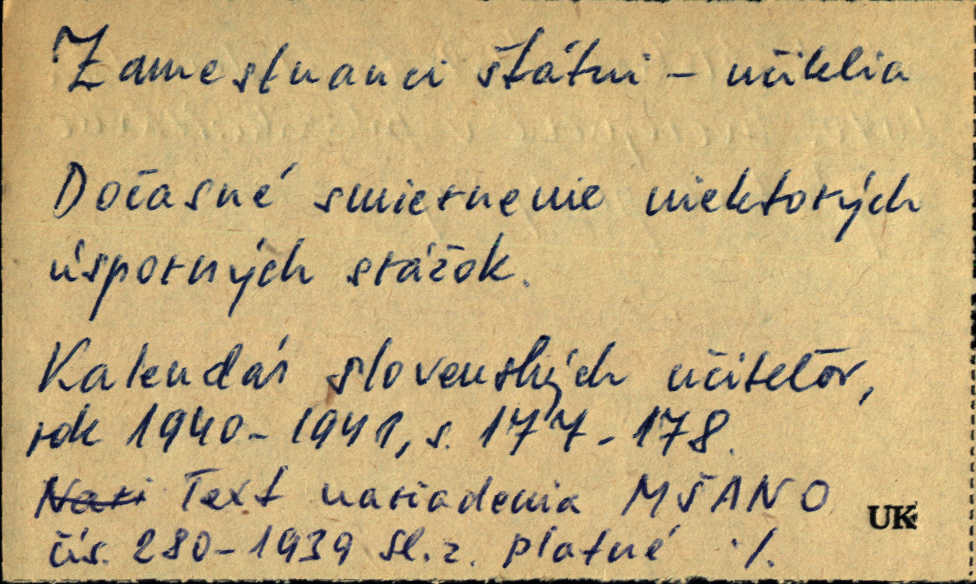 Zamestnanci štátni – učitelia
Dočasné smiernenie niektorých
úsporných srážok.
Kalendár slovenských učiteľov,
rok 1940-1941, s. 177-178.
Nari Text nariadenia MŠANO
čís. 280-1939 Sl. z. platné ./.
UK